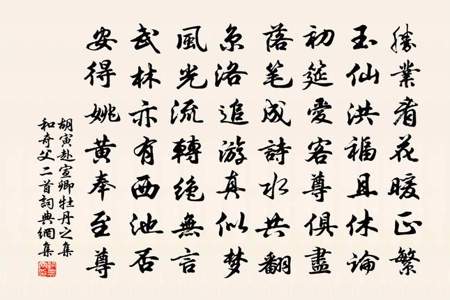 勝業看花暖正繁
玉仙洪福且休論
初筵愛客尊俱盡
落筆成詩水共翻
京洛追游真似夢
風光流轉絕無言
武林亦有西池否
安得姚黃奉至尊
胡寅赴宣卿牡丹之集
和奇父二首詞典網集